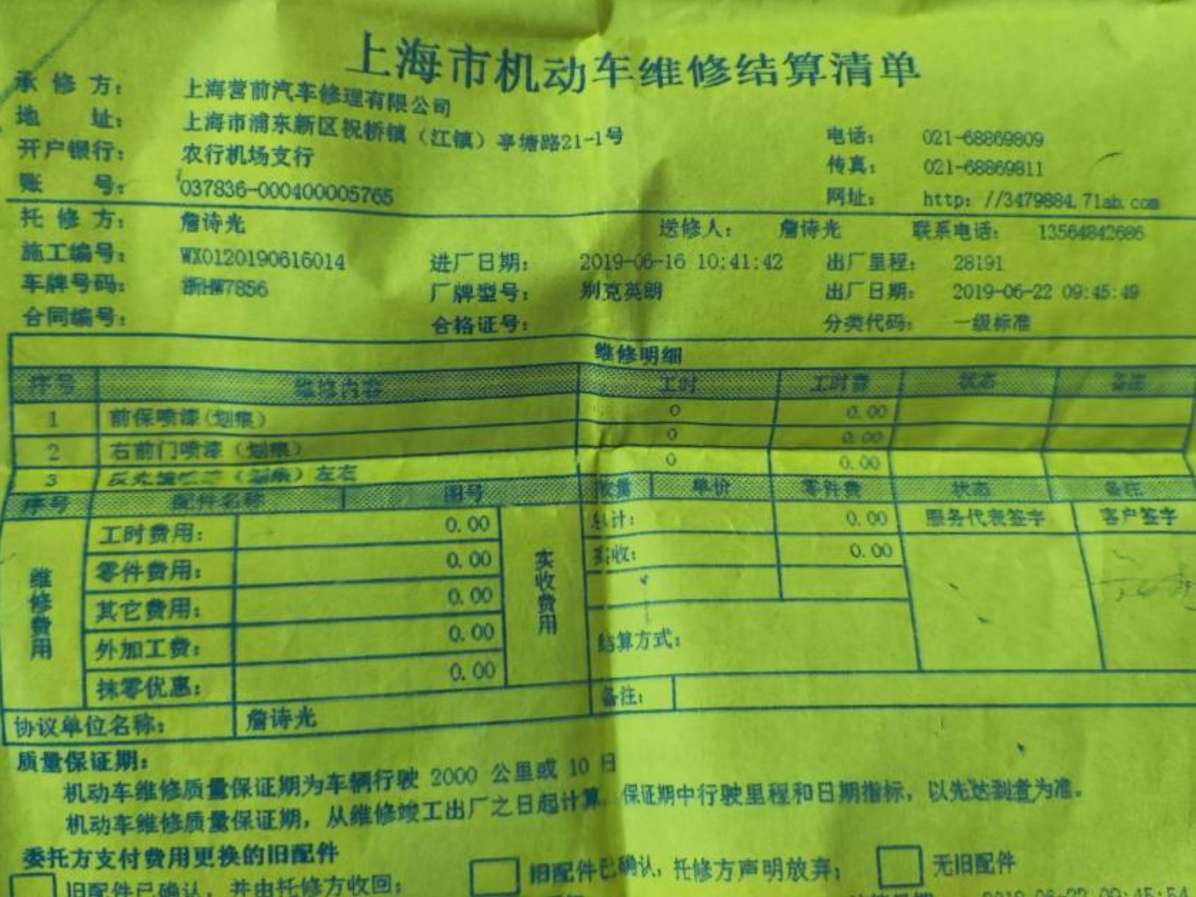 上海市机动车维修结算清单
承 修 方： 上海营前汽车修理有限公司
地 址： 上海市浦东新区祝桥镇（江镇）亭塘路21-1号 电话： 021-68869809
开户银行： 农行机场支行 传真： 021-68869811
账 号： 037836-000400005765 网址： http: //3479884.71ab.com
托 修 方： 詹诗光 送修人： 詹诗光 联系电话： 13564842686
施工编号： WX0120190616014 进厂日期： 2019-06-16 10:41:42 出厂里程： 28191
车牌号码： 浙HW7856 厂牌型号： 别克英朗 出厂日期： 2019-06-22 09:45:49
合同编号： 合格证号： 分类代码： 一级标准
维修明细
序号 维修内容 工时 工时费 状态 备注
1 前保喷漆(划痕) 0 0.00
2 右前门喷漆（划痕） 0 0.00
3 左右 0 0.00
序号 配件名称 图号 数量 单价 零件费 状态 备注
维修费用 工时费用： 0.00 实收费用 总计： 0.00 服务代表签字 客户签字
零件费用： 0.00 实收： 0.00
其它费用： 0.00
外加工费： 0.00 结算方式：
抹零优惠： 0.00 备注：
协议单位名称： 詹诗光
质量保证期：
机动车维修质量保证期为车辆行驶 2000 公里或 10 日
机动车维修质量保证期，从维修竣工出厂之日起计算 保证期中行驶里程和日期指标，以先达到者为准。
委托方支付费用更换的旧配件
旧配件已确认，并由托修方收回； 旧配件已确认，托修方声明放弃； 无旧配件
2019-06-22 09:45:54